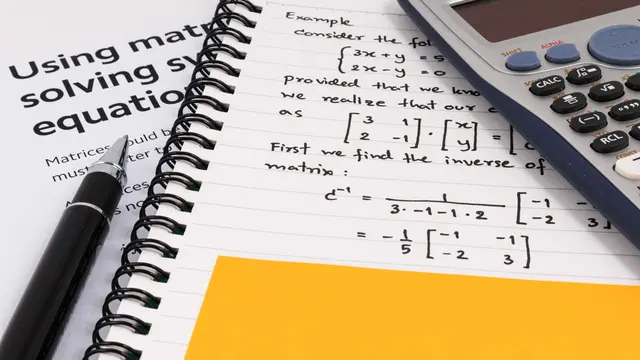 Using matr
solving sy
equatio
Matrices
must
Example
Consider the
3x + y = 5
2x - y = 0
provided that we
we realize that our
as [3 1; 2 -1] · [x; y] = [
First we find the inverse of
matrix :
c⁻¹ = 1/(3·-1-1·2) [-1 -; -2 3]
= -1/5 [-1 -1; -2 3]
SHIFT ALPHA
CALC
√
(-)
RCL